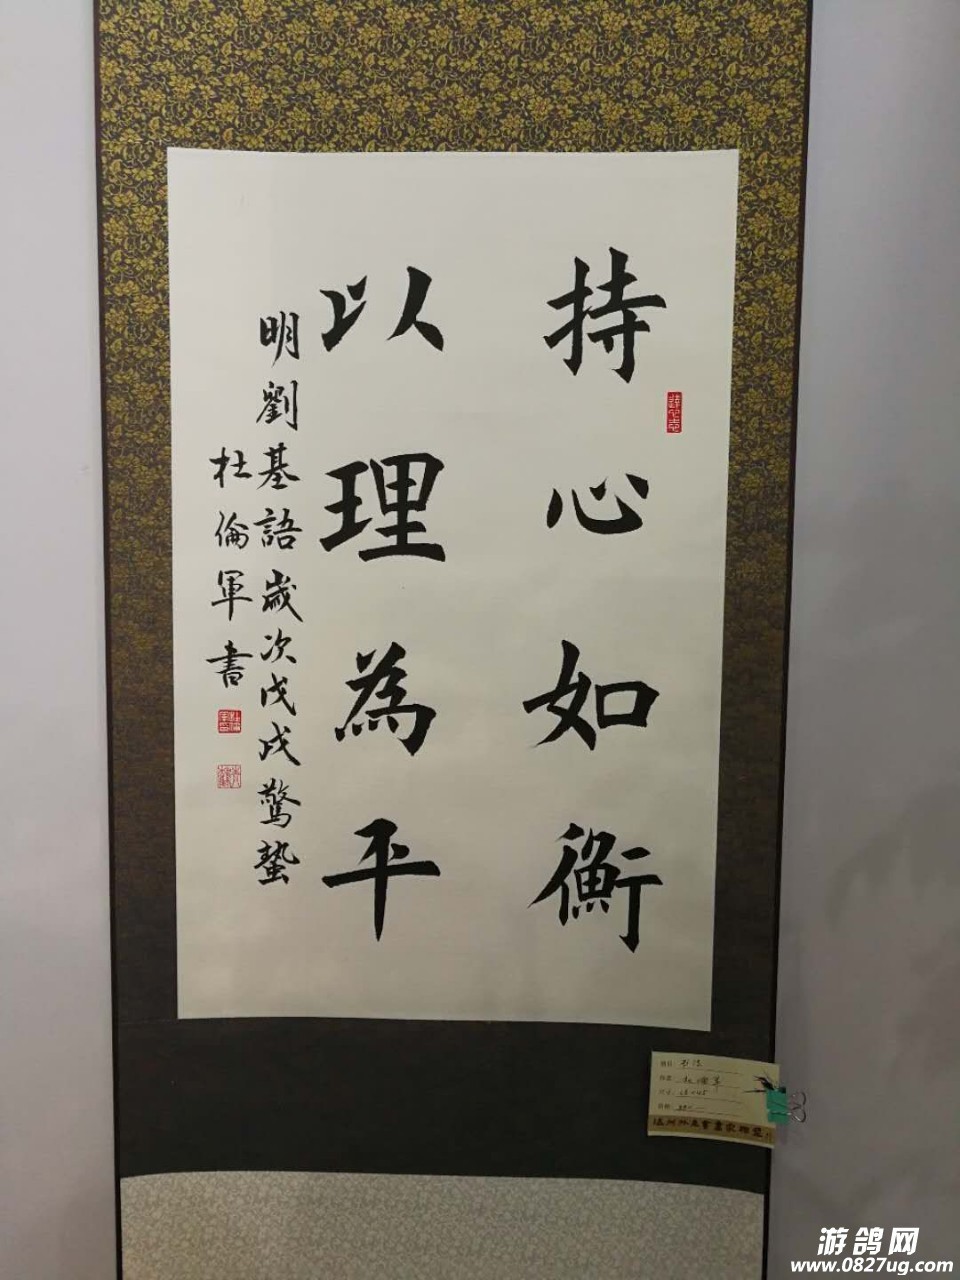 持心如衡
以理為平
明劉基語歲次戊戌驚蟄
杜倫軍書
杜倫軍
游鸽网
www.0827ug.com